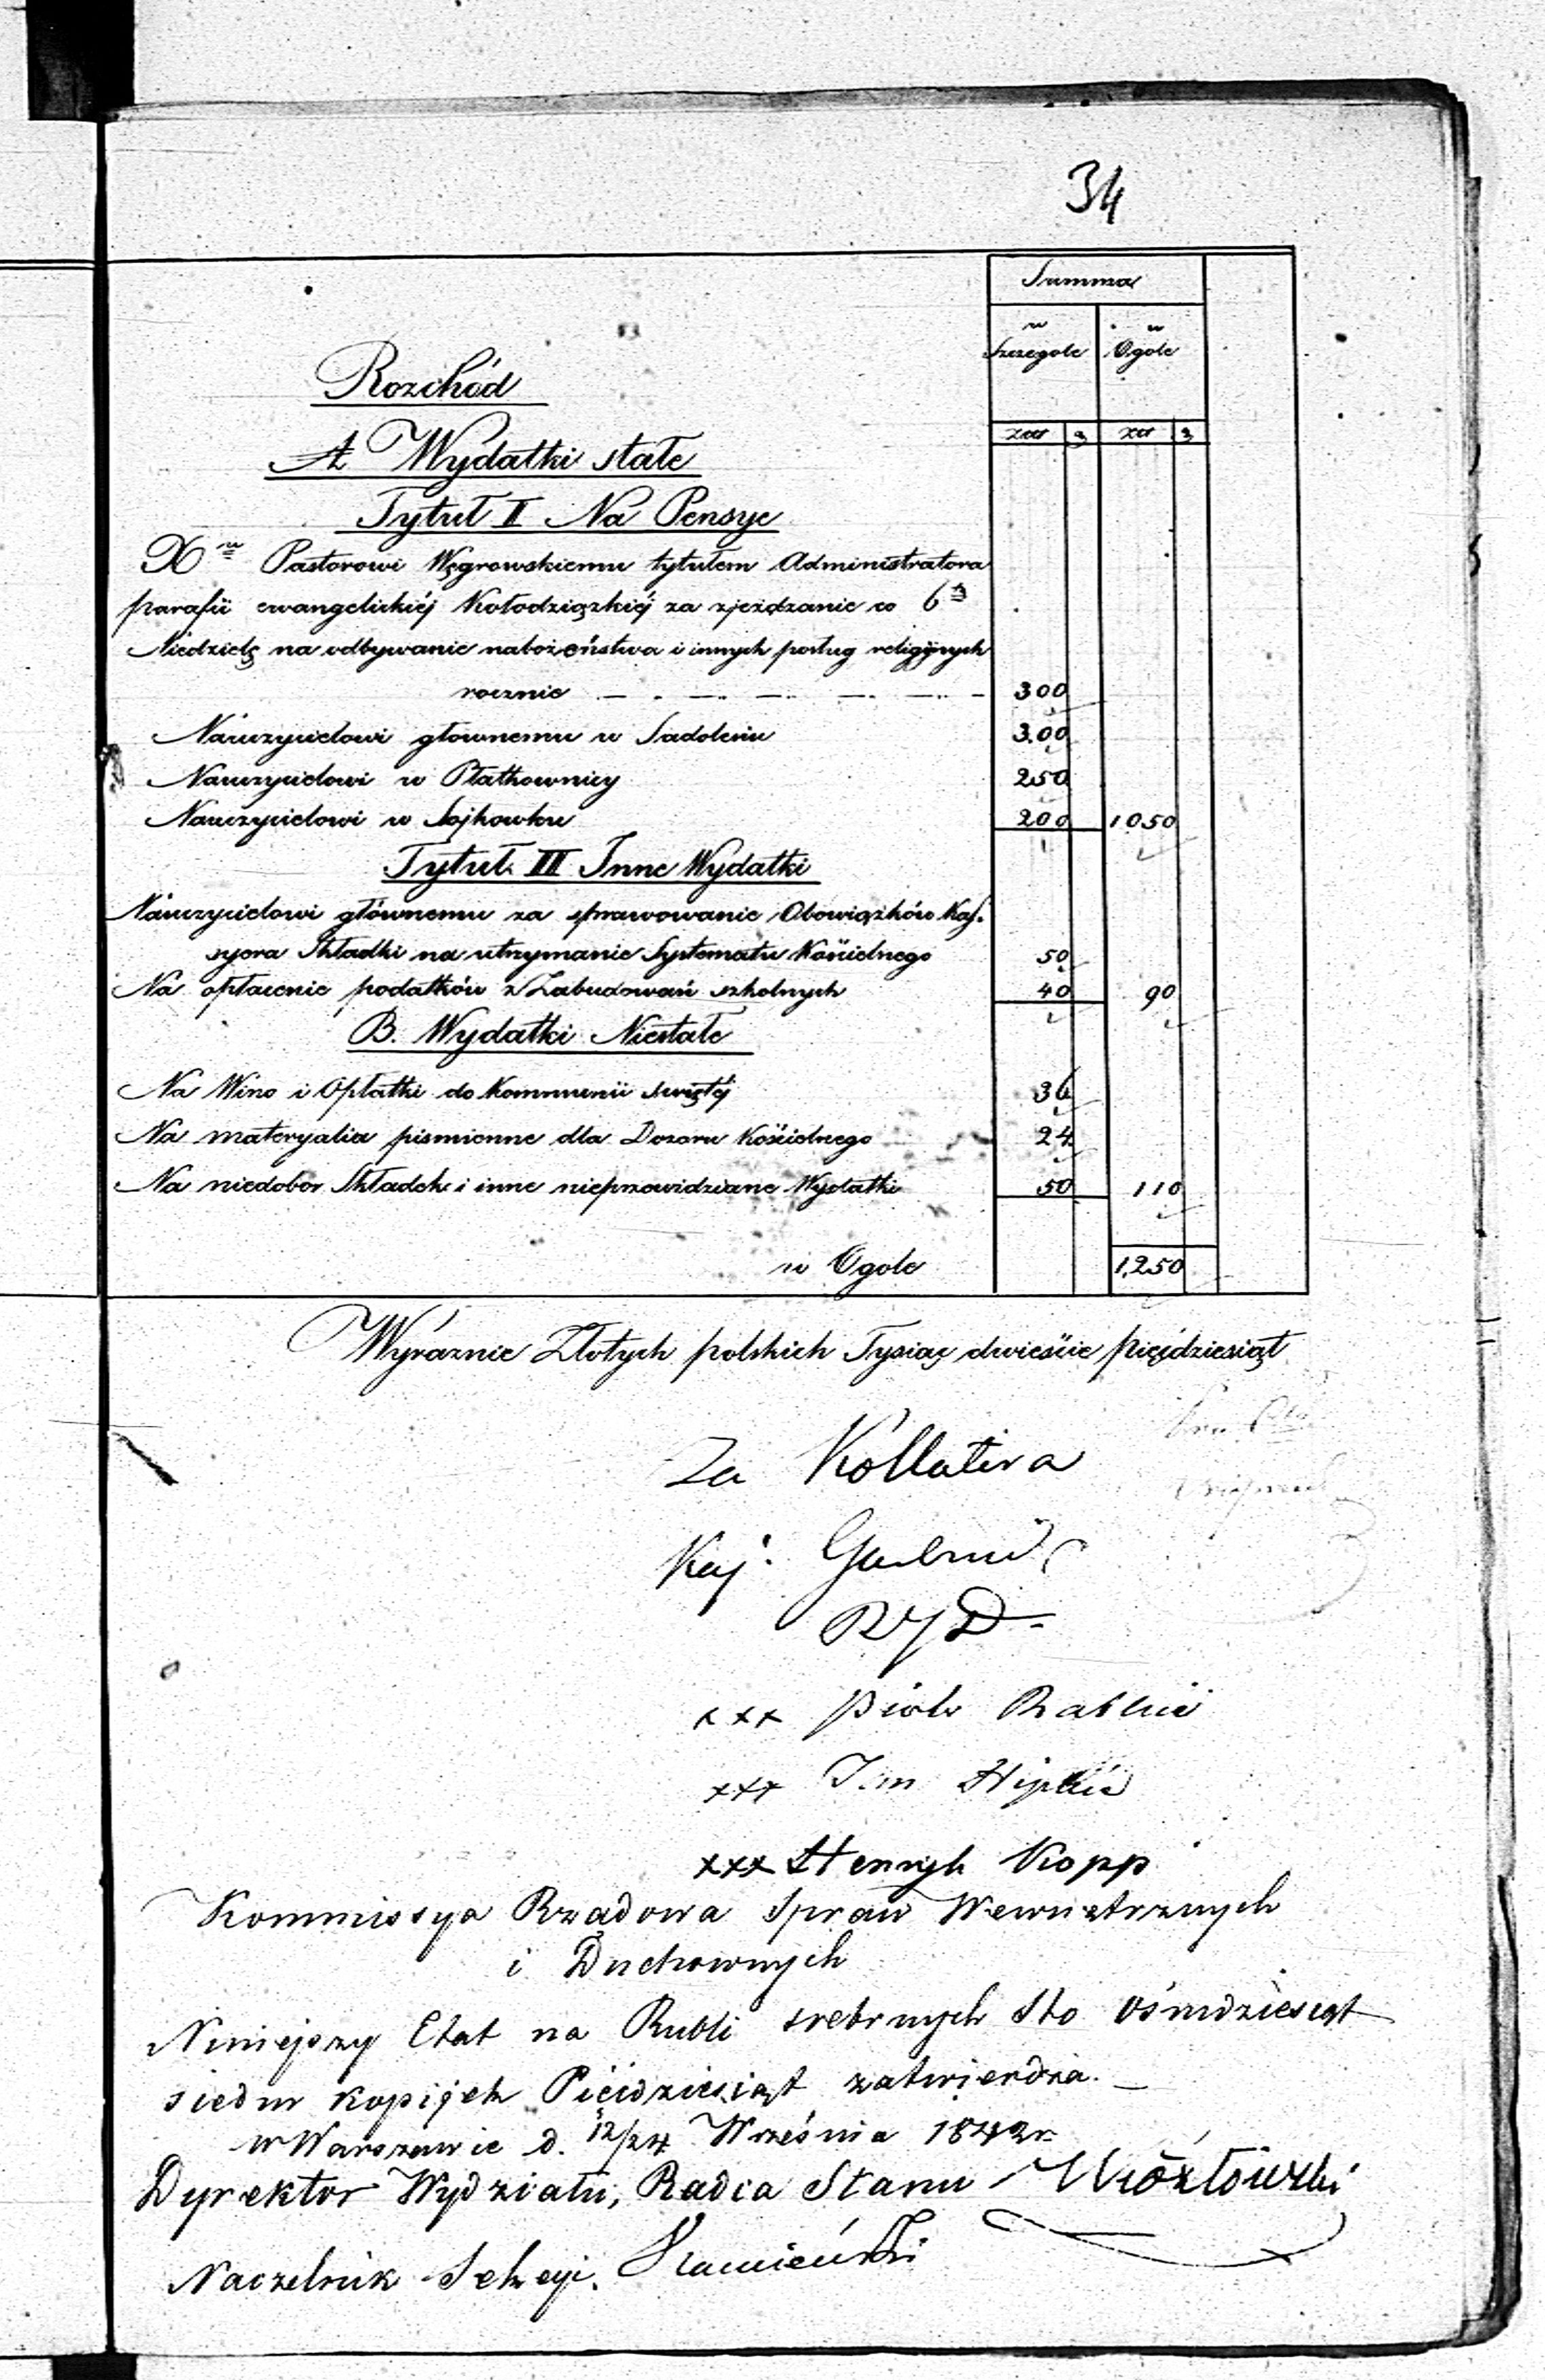 34
Summa
w Szczegole
w Ogole
Rozchód
złt g złt g
A Wydatki stałe
Tytuł I Na Pensye
X Pastorowi Węgrowskiemu tytułem Administratora
parafii ewangelickiéj Kołodziązkiéj za zjeżdzanie co 6
Niedzielę na odbywanie nabożeństwa i innych posług religijnych
rocznie 300
Nauczycielowi głownemu w Sadoleśiu 300
Nauczycielowi w Płatkownicy 250
Nauczycielowi w Sojkowku 200 1050
Tytuł II Inne Wydatki
Nauczycielowi głównemu za sprawowanie Obowiązków Kas-
syera Składki na utrzymanie Systematu Kościelnego 50
Na opłacenie podatków z Zabudowań szkolnych 40 90
B. Wydatki Niestałe
Na Wino i Opłatki do Kommunii Świętéj 36
Na materyalia pismienne dla Dozoru Kościelnego 24
Na niedobor Składek i inne nieprzewidziane Wydatki 50 110
w Ogole 1,250
Wyraznie Złotych polskich Tysiąc dwieście pięćdziesiąt
Za Kollatora
Kaj.
xxx Piotr
xxx
xxx Henryk Kopp
Kommissya Rządowa Spraw Wewnętrznych
i Duchownych
Niniejszy Etat na Rubli srebrnych Sto Ośmdziesiąt
siedm kopijek Pięćdziesiąt zatwierdza. —
w Warszawie d. 12/24 Września 1842 r.
Dyrektor Wydziału, Radca Stanu
Naczelnik Sekcyi.